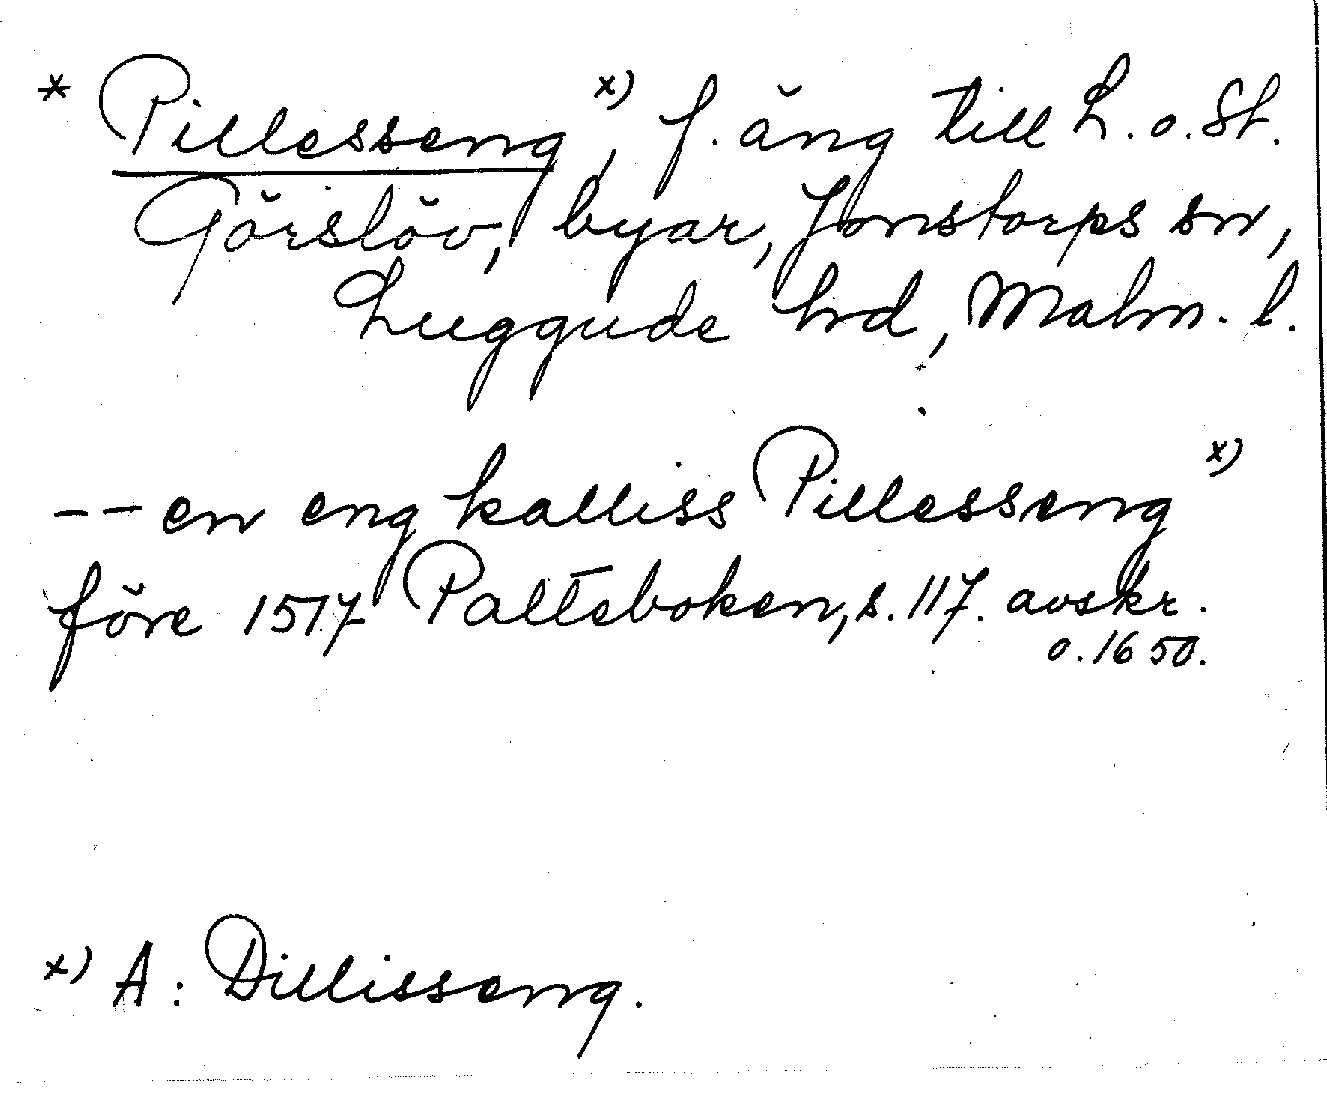 * Pillesseng x), f. äng till L. o. St.
Görslöv, byar, Jonstorps sn,
Luggude hrd, Malm. l.
-- en eng kalliss Pillesseng x)
före 1517 Palteboken, s. 117. avskr.
o. 1650.
x) A: Dillisseng.